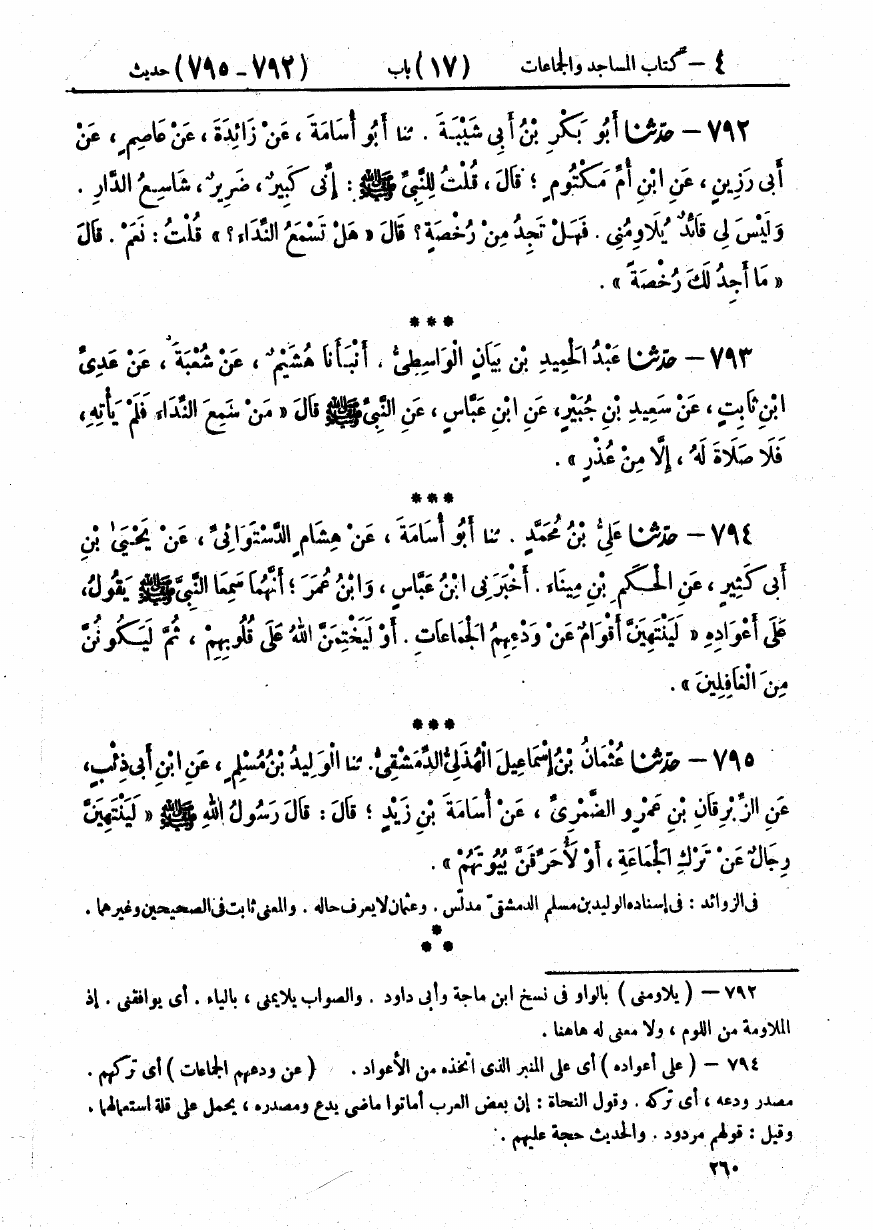 ٤ – كتاب المساجد والجماعات (١٧) باب (٧٩٢ – ٧٩٥) حديث
٧٩٢ – حَدَّثَنَا أَبُو بَكْرِ بْنُ أَبِي شَيْبَةَ . ثنا أَبُو أُسَامَةَ ، عَنْ زَائِدَةَ ، عَنْ عَاصِمٍ ، عَنْ
أَبِي رَزِينٍ ، عَنِ ابْنِ أُمِّ مَكْتُومٍ ؛ قَالَ ، قُلْتُ لِلنَّبِيِّ ﷺ : إِنِّى كَبِيرٌ ، ضَرِيرٌ ، شَاسِعُ الدَّارِ .
وَلَيْسَ لِي قَائِدٌ يُلَاوِمُنِى . فَهَلْ تَجِدُ مِنْ رُخْصَةٍ ؟ قَالَ « هَلْ تَسْمَعُ النِّدَاءَ ؟ » قُلْتُ : نَعَمْ . قَالَ
« مَا أَجِدُ لَكَ رُخْصَةً » .
***
٧٩٣ – حَدَّثَنَا عَبْدُ الْحَمِيدِ بْنِ بَيَانٍ الْوَاسِطِيُّ . أَنْبَأَنَا هُشَيْمٌ ، عَنْ شُعْبَةَ ، عَنْ عَدِيِّ
ابْنِ ثَابِتٍ ، عَنْ سَعِيدِ بْنِ جُبَيْرٍ ، عَنِ ابْنِ عَبَّاسٍ ، عَنِ النَّبِيِّ ﷺ قَالَ « مَنْ سَمِعَ النِّدَاءَ فَلَمْ يَأْتِهِ ،
فَلَا صَلَاةَ لَهُ ، إِلَّا مِنْ عُذْرٍ » .
***
٧٩٤ – حَدَّثَنَا عَلِيُّ بْنُ مُحَمَّدٍ . ثنا أَبُو أُسَامَةَ ، عَنْ هِشَامٍ الدَّسْتَوَائِيِّ ، عَنْ يَحْيَىٰ بْنِ
أَبِي كَثِيرٍ ، عَنِ الْحَكَمِ بْنِ مِينَاءَ . أَخْبَرَنِى ابْنُ عَبَّاسٍ ، وَابْنُ عُمَرَ ؛ أَنَّهُمَا سَمِعَا النَّبِيَّ ﷺ يَقُولُ ،
عَلَى أَعْوَادِهِ « لَيَنْتَهِيَنَّ أَقْوَامٌ عَنْ وَدْعِهِمُ الْجَمَاعَاتِ . أَوْ لَيَخْتِمَنَّ اللهُ عَلَى قُلُوبِهِمْ ، ثُمَّ لَيَكُونُنَّ
مِنَ الْغَافِلِينَ » .
***
٧٩٥ – حَدَّثَنَا عُثْمَانُ بْنُ إِسْمَاعِيلَ الْهُذَلِيُّ الدِّمَشْقِيُّ . ثنا الْوَلِيدُ بْنُ مُسْلِمٍ ، عَنِ ابْنِ أَبِي ذِئْبٍ ،
عَنِ الزِّبْرِقَانِ بْنِ عَمْرٍو الضَّمْرِيِّ ، عَنْ أُسَامَةَ بْنِ زَيْدٍ ؛ قَالَ : قَالَ رَسُولُ اللهِ ﷺ « لَيَنْتَهِيَنَّ
رِجَالٌ عَنْ تَرْكِ الْجَمَاعَةِ ، أَوْ لَأُحَرِّقَنَّ بُيُوتَهُمْ » .
فى الزوائد : فى إسناده الوليد بن مسلم الدمشقىّ مدلّس . وعثمان لا يعرف حاله . والمعنى ثابت فى الصحيحين وغيرهما .
*
* *
٧٩٢ – ( يلاومنى ) بالواو فى نسخ ابن ماجة وأبى داود . والصواب يلايمنى ، بالياء . أى يوافقنى . إذ
الملاومة من اللوم ، ولا معنى له هاهنا .
٧٩٤ – ( على أعواده ) أى على المنبر الذى اتخذه من الأعواد . ( عن ودعهم الجماعات ) أى تركهم .
مصدر ودعه ، أى تركه . وقول النحاة : إن بعض العرب أماتوا ماضى يدع ومصدره ، يحمل على قلة استعمالهما .
وقيل : قولهم مردود . والحديث حجة عليهم .
٢٦٠